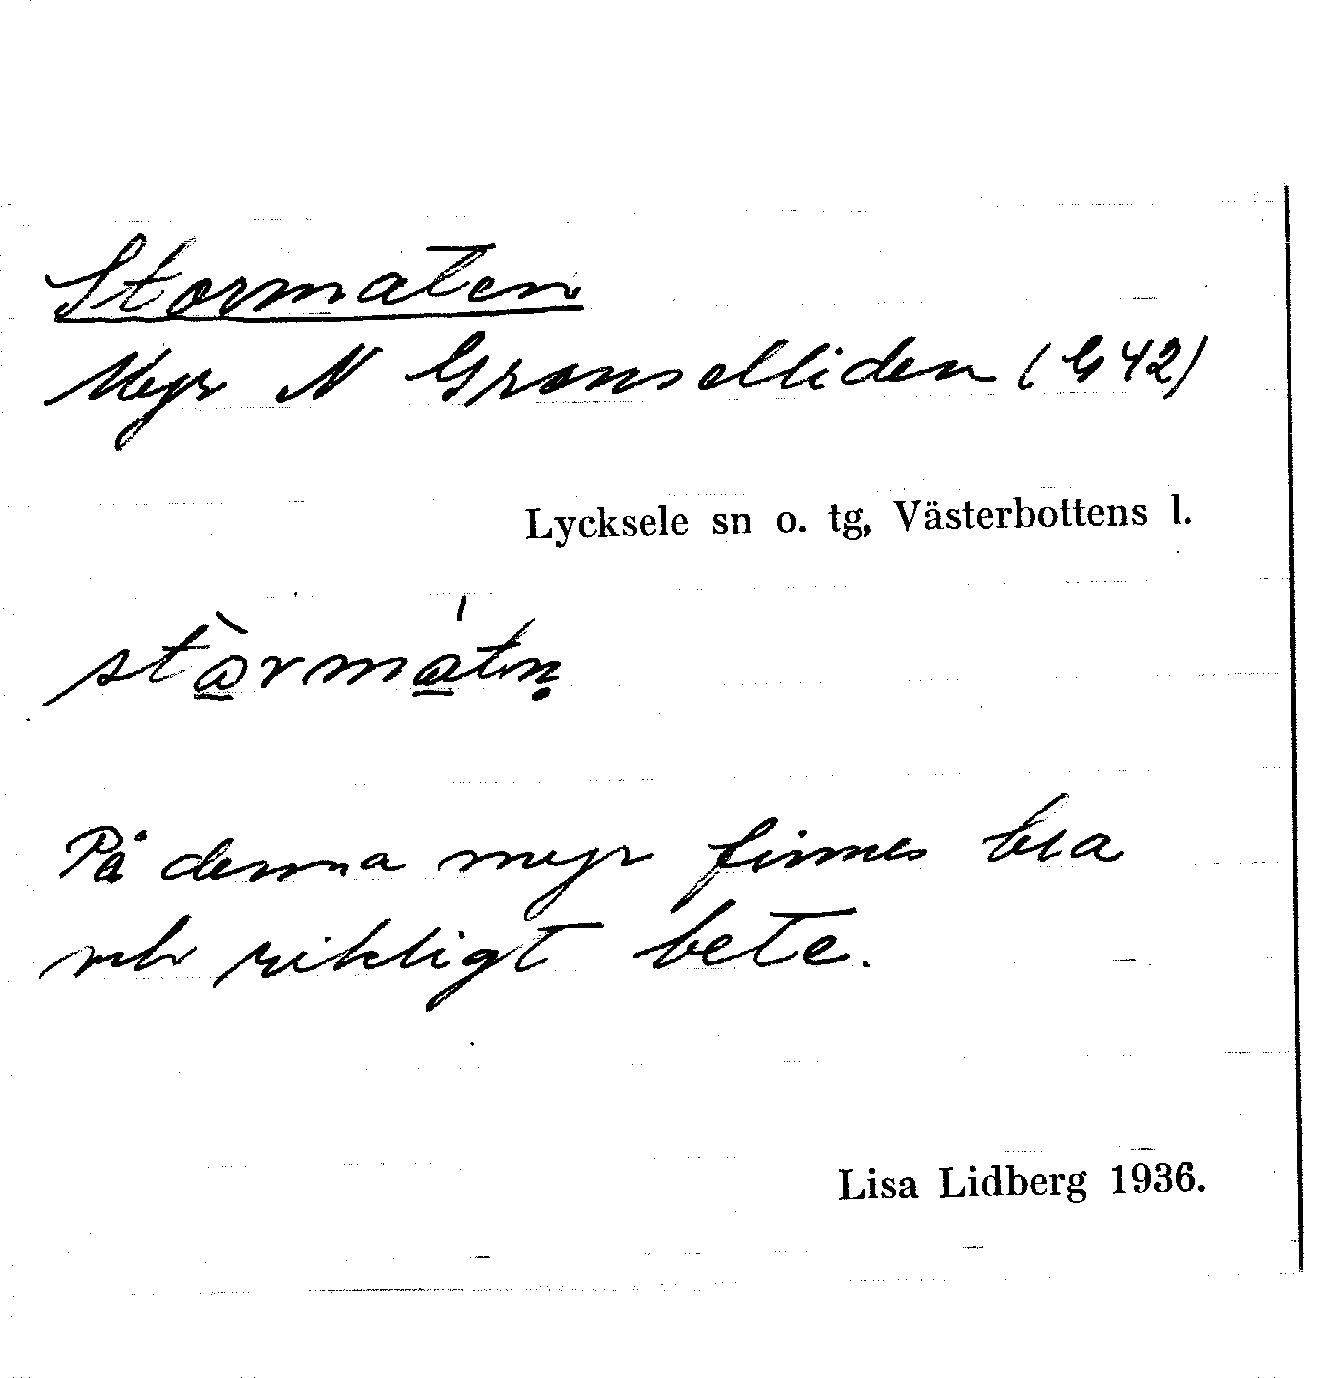 Stormaten
Myr N Granselliden (G 42)
Lycksele sn o. tg, Västerbottens l.
På denna myr finnes bra
och rikligt bete.
Lisa Lidberg 1936.